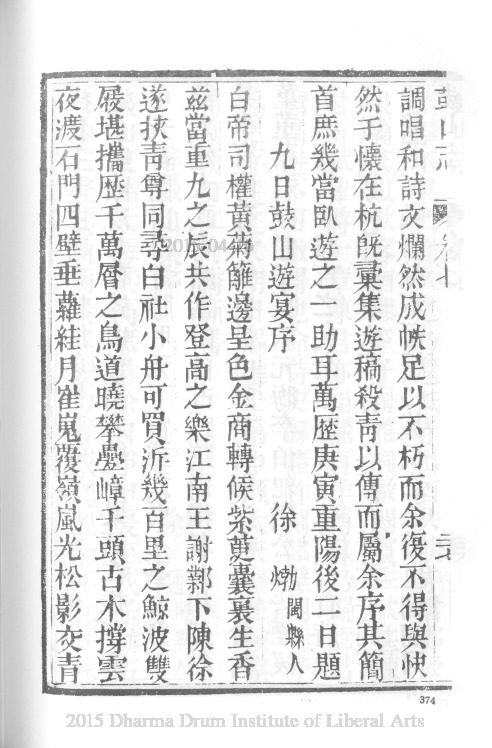 鼓山志 卷七
調唱和詩文爛然成帙足以不朽而余復不得與快
然于懷在杭既彙集遊稿殺青以傳而屬余序其簡
首庶幾當臥遊之一助耳萬歷庚寅重陽後二日題
九日鼓山遊宴序 徐㷿閩縣人
白帝司權黃菊籬邊呈色金商轉候紫萸囊裏生香
茲當重九之辰共作登高之樂江南王謝鄴下陳徐
遂挾青尊同尋白社小舟可買泝幾百里之鯨波雙
屐堪攜歷千萬層之鳥道曉攀疊嶂千頭古木撐雲
夜渡石門四壁垂蘿絓月崔嵬覆嶺嵐光松影交青
374
2015 Dharma Drum Institute of Liberal Arts